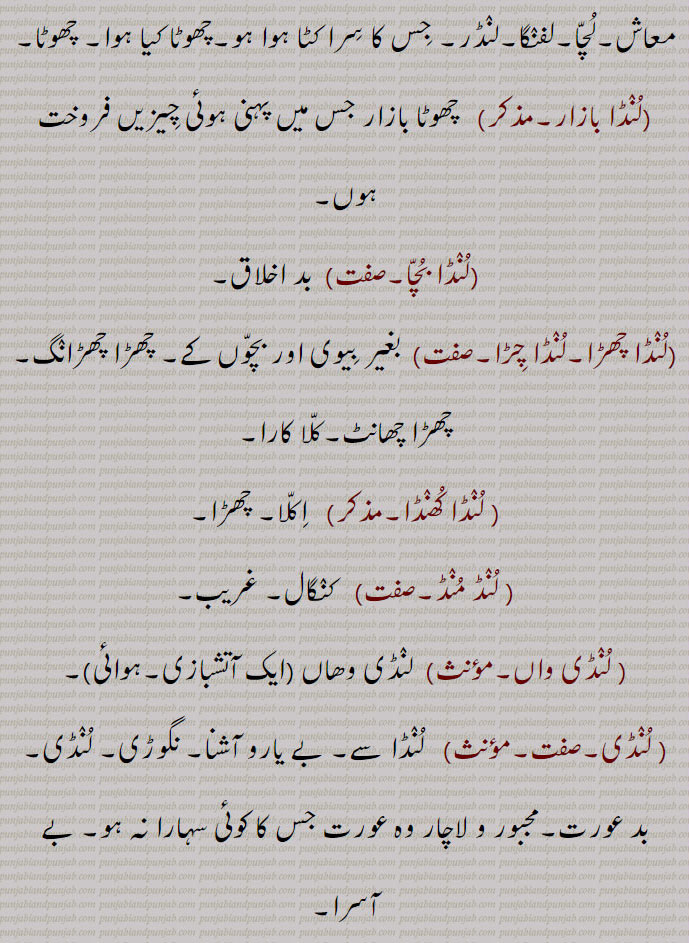 معاش۔لُچّا۔لفنٛگا۔لنٛڈر۔ جِس کا سِرا کٹا ہوا ہو۔چھوٹا کیا ہوا۔ چھوٹا۔
(لُنٛڈا بازار۔مذکر) چھوٹا بازار جس میں پہنی ہوئی چِیزیں فروخت
ہوں۔
(لُنٛڈا بُچّا۔صفت) بد اخلاق۔
(لُنٛڈا چھڑا۔لُنٛڈا چِڑا۔صفت) بغیر بِیوی اور بچّوں کے۔ چھڑا چھڑانٛگ۔
چھڑا چھانٹ۔کلّا کارا۔
( لُنٛڈا کُھنٛڈا۔مذکر) اِکلّا۔ چھڑا۔
( لُنٛڈ مُنٛڈ۔صفت) کنٛگال۔ غریب۔
( لُنٛڈی واں۔مؤنث) لنٛڈی وھاں (ایک آتشبازی۔ہوائی)۔
( لُنٛڈی۔صفت۔مؤنث) لُنٛڈا سے۔ بے یارو آشنا۔ نگوڑی۔ لُنٛڈی۔
بد عورت۔مجبور و لاچار وہ عورت جس کا کوئی سہارا نہ ہو۔ بے
آسرا۔